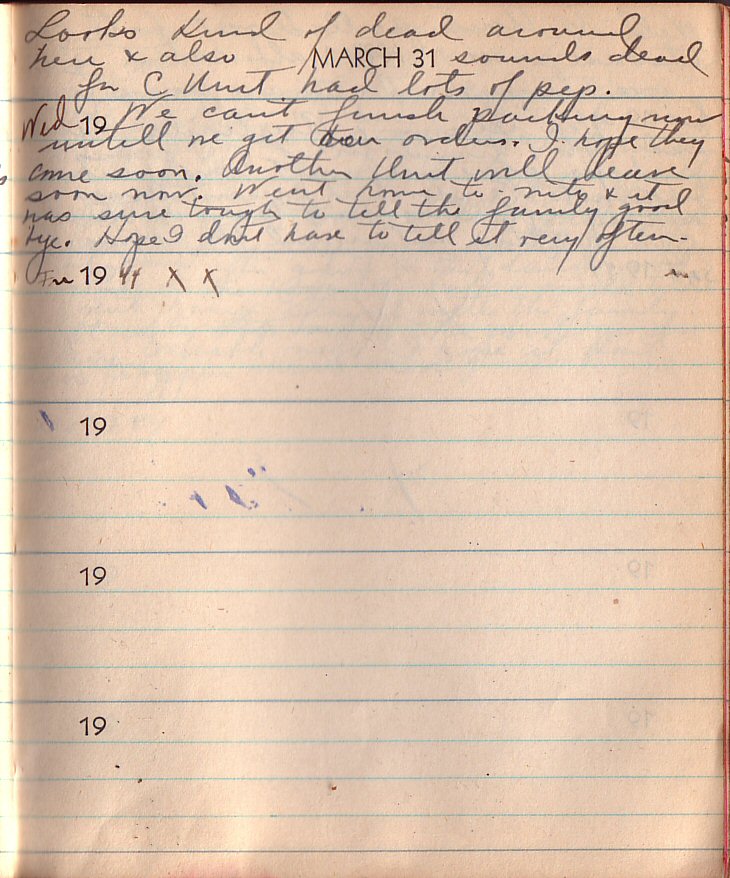 Looks kind of dead around
here & also MARCH 31 sounds dead
for C Unit had lots of pep.
Wed 19 We can't finish packing now
untill we get our orders. I hope they
come soon. Another Unit will leave
soon now. Went home to-nite & it
was sure tough to tell the family good
bye. Hope I dont have to tell it very often-
Fri 19 44 X X
19
19
19